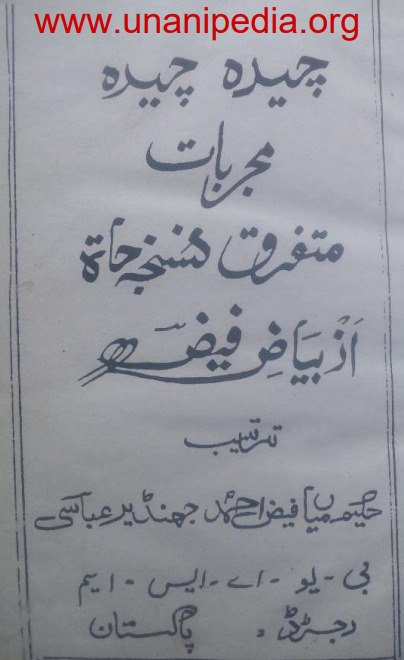 www.unanipedia.org
چیدہ چیدہ
مجربات
متفرق نسخہ جاۃ
از بیاضِ فیض
ترتیب
حکیم میاں فیض احمد جھنڈیر عباسی
بی - یو - اے - ایس - ایم
رجسٹرڈ، پاکستان